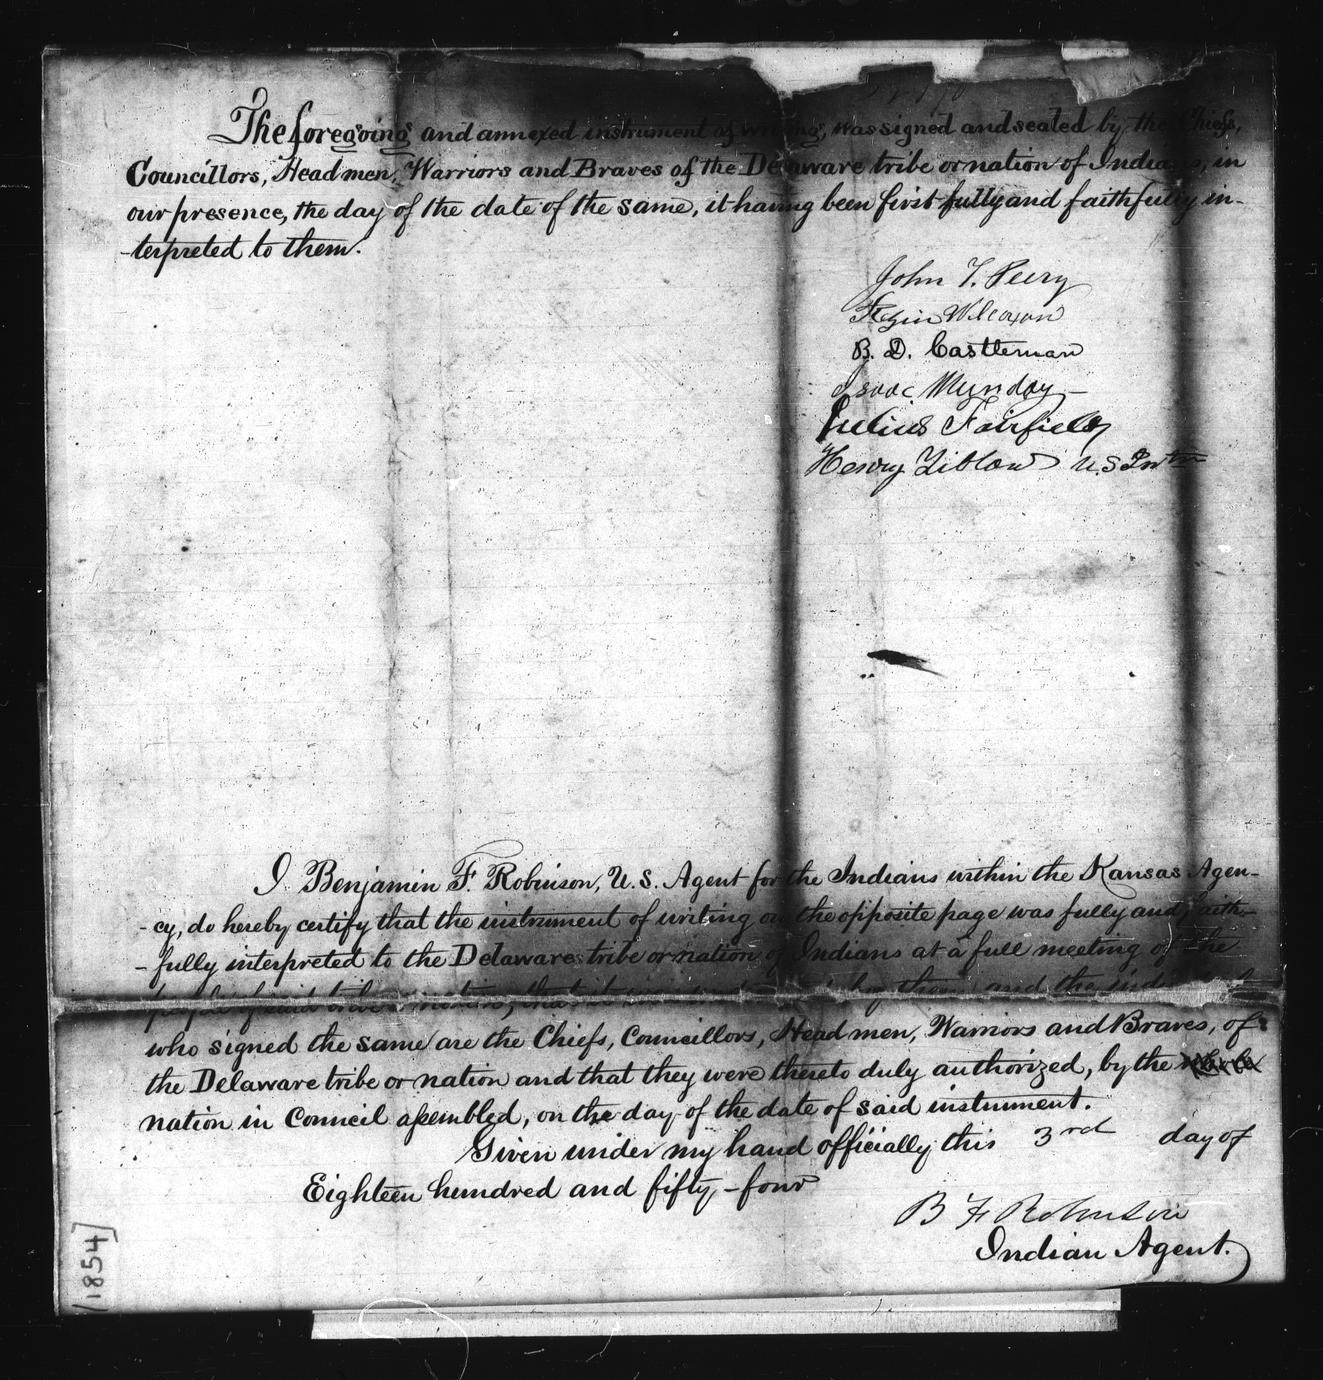 The foregoing and annexed instrument of writing, was signed and sealed by the Chiefs,
Councillors, Head men, Warriors and Braves of the Delaware tribe or nation of Indians, in
our presence, the day of the date of the same, it having been first fully and faithfully in-
-terpreted to them.
John T. Peery
Wilcoxon
B. D. Castleman
Isaac Munday
Julius Fairfield
Henry Tiblow U.S. Intr
I Benjamin F. Robinson, U.S. Agent for the Indians within the Kansas Agen-
-cy, do hereby certify that the instrument of writing on the opposite page was fully and faith-
-fully interpreted to the Delaware tribe or nation of Indians at a full meeting of the
people of said tribe or nation, that it by them and the
who signed the same are the Chiefs, Councillors, Head men, Warriors and Braves, of
the Delaware tribe or nation and that they were thereto duly authorized, by the
nation in Council assembled, on the day of the date of said instrument.
Given under my hand officially this 3rd day of
Eighteen hundred and fifty-four
B F Robinson
Indian Agent.
[1854]